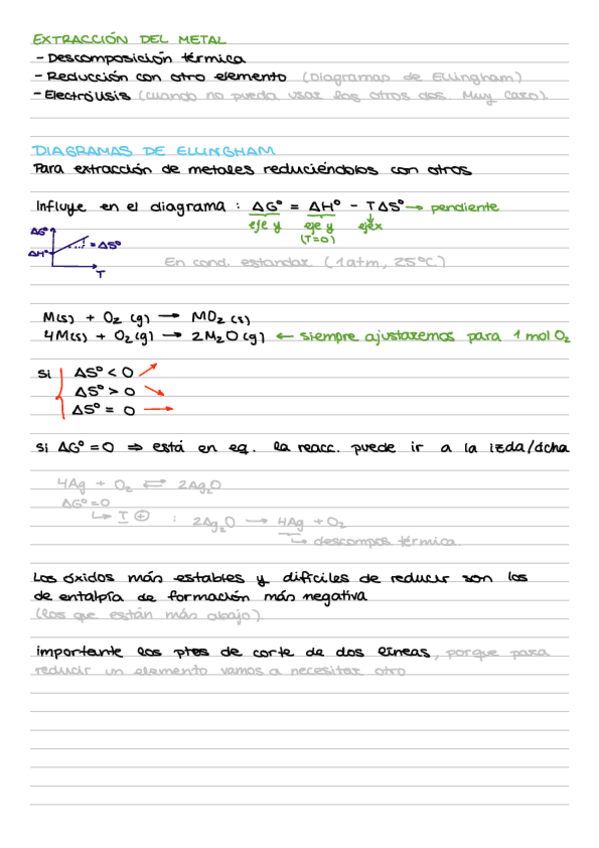 EXTRACCIÓN DEL METAL
- Descomposición térmica
- Reducción con otro elemento (Diagramas de Ellingham)
- Electrólisis (cuando no pueda usar los otros dos. Muy caro).
DIAGRAMAS DE ELLINGHAM
Para extracción de metales reduciéndolos con otros
Influye en el diagrama : ΔG° = ΔH° - TΔS° → pendiente
eje y eje y eje x
(T=0)
ΔG°
ΔH°
= ΔS°
T
En cond. estandar (1atm, 25°C)
M(s) + O₂ (g) → MO₂ (s)
4M(s) + O₂(g) → 2M₂O (g) ← siempre ajustaremos para 1 mol O₂
si ΔS° < 0 ↗
ΔS° > 0 ↘
ΔS° = 0 →
si ΔG° = 0 ⇒ está en eq. la reacc. puede ir a la izda/dcha
4Ag + O₂ ⇌ 2Ag₂O
ΔG°=0
↳ T ⊕ : 2Ag₂O → 4Ag + O₂
↳ descompos térmica.
Los óxidos más estables y difíciles de reducir son los
de entalpía de formación más negativa
(los que están más abajo).
importante los ptos de corte de dos líneas, porque para
reducir un elemento vamos a necesitar otro